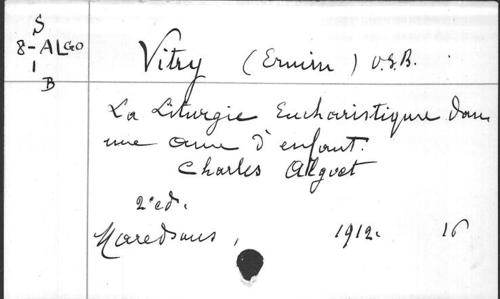 S
8-ALGO
1
B
Vitry (Ermin) O.S.B.
La Liturgie Eucharistique dans
une ame d'enfant.
Charles Algoet
2e ed.
Maredsous, 1912. 16